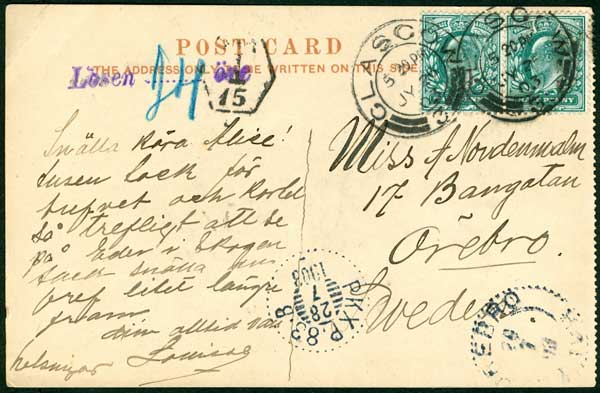 POST CARD
THE ADDRESS ONLY TO BE WRITTEN ON THIS SIDE
Lösen 14 öre
T
15
GLASGOW
5 20 PM
GLASGOW
5 20 PM
Snälla kära Alise!
tusen tack för
brefvet och kortet
så trefligt att se
på Eder i Skogen
tack snälla
bref litet längre
fram.
din alltid
Louise
helsningar
Miss A Nordenmalm
17 Bangatan
Örebro.
Sweden
PKXP
28
7
1903
ÖREBRO
29
7